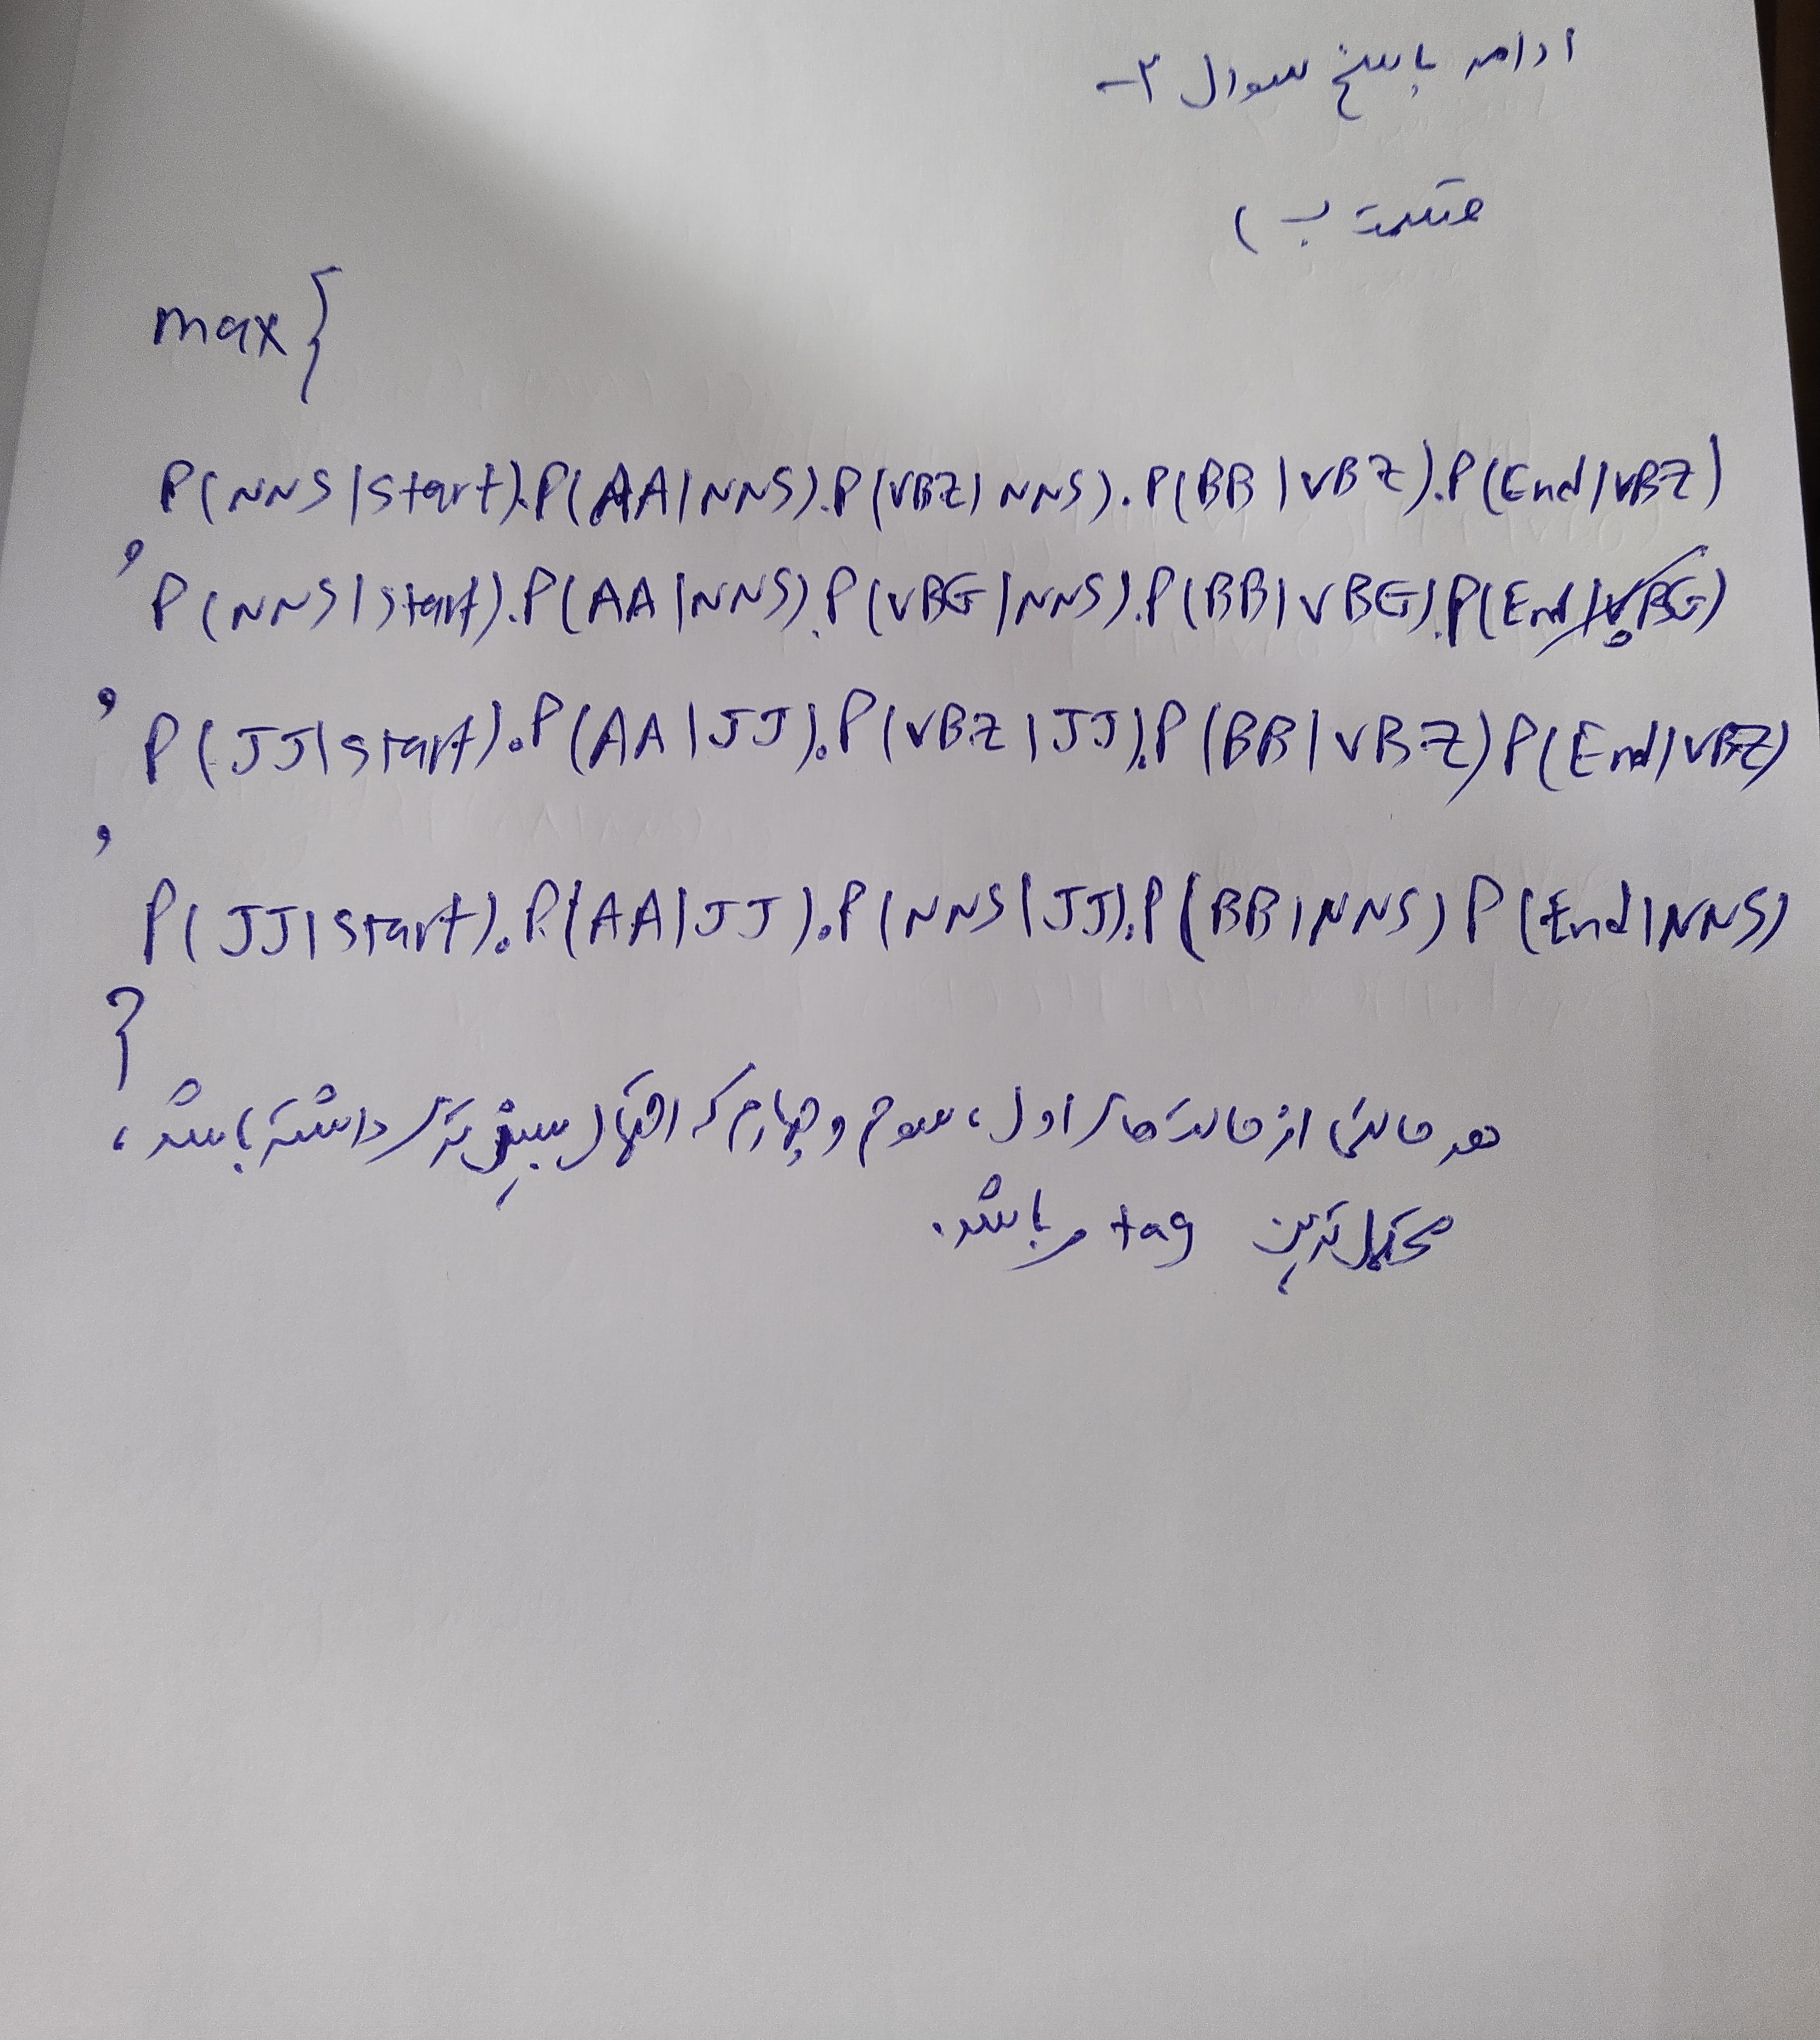 ادامه پاسخ سوال ۳-
قسمت ب )
max{
P(NNS|Start).P(AA|NNS).P(VBZ|NNS).P(BB|VBZ).P(End|VBZ)
, P(NNS|Start).P(AA|NNS).P(VBG|NNS).P(BB|VBG).P(End|VBG)
, P(JJ|Start).P(AA|JJ).P(VBZ|JJ).P(BB|VBZ)P(End|VBZ)
,
P(JJ|Start).P(AA|JJ).P(NNS|JJ).P(BB|NNS)P(End|NNS)
}
هر حالتی از حالت های اول، سوم و چهارم که احتمال بیش تری داشته باشد،
محتمل ترین tag می باشد.